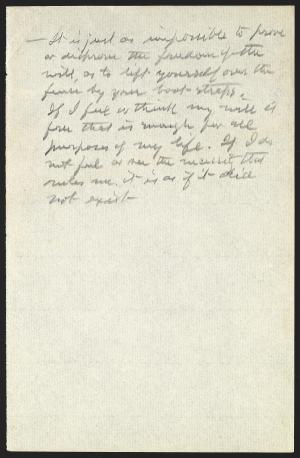 — It is just as impossible to prove
or disprove the freedom of the
will, as to lift yourself over the
fence by your boot straps.
If I feel or think my will is
free that is enough for all
purposes of my life. If I do
not feel or see the necessity that
rules me, it is as if it did
not exist—